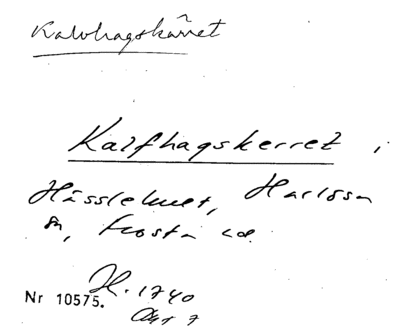 Kalvhagskärret
Kalfhagskerret i
Hässlehuset, Harlösa
sn, Frosta hd.
H. 1740
Nr 10575.
Akt 7